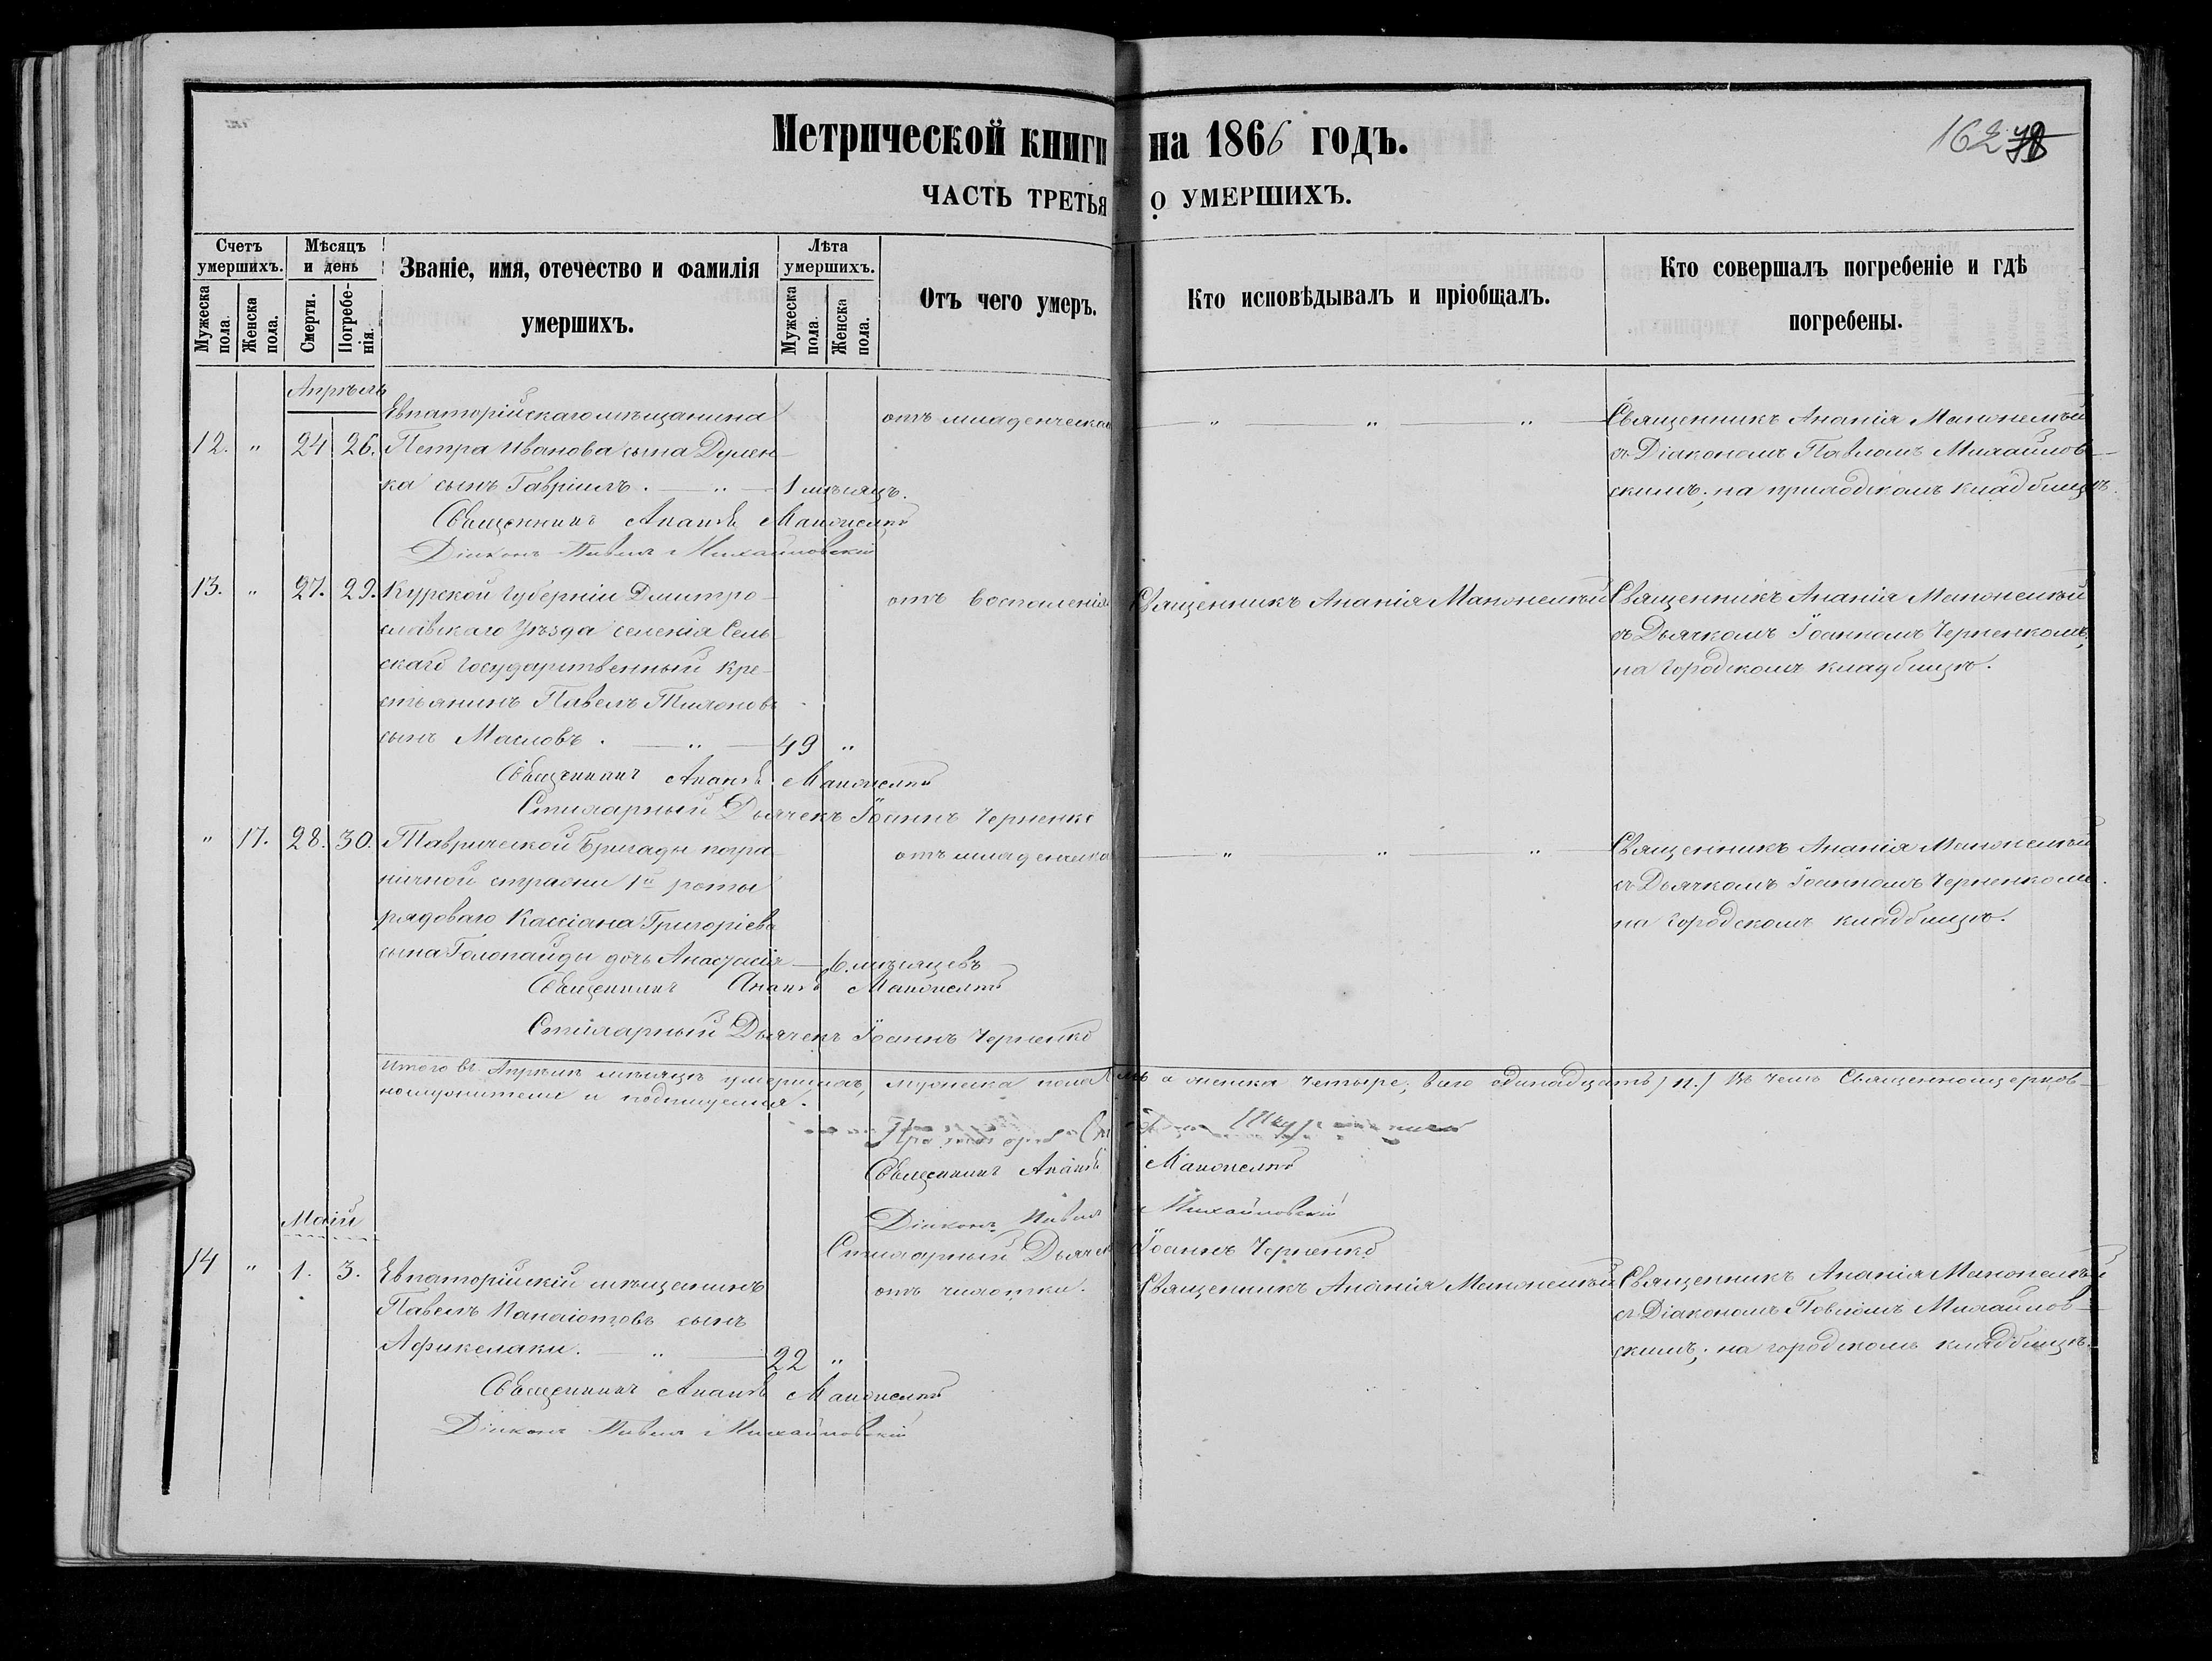 Метрической книги на 1866 годъ.
162
ЧАСТЬ ТРЕТЬЯ О УМЕРШИХЪ.
Счетъ умершихъ.
Мужеска пола.
Женска пола.
Мѣсяцъ и день
Смерти.
Погребенія.
Званіе, имя, отечество и фамилія
умершихъ.
Лѣта умершихъ.
Мужеска пола.
Женска пола.
Отъ чего умеръ.
Кто исповѣдывалъ и пріобщалъ.
Кто совершалъ погребеніе и гдѣ
погребены.
Апрѣль
Евпаторійскаго мѣщанина отъ младенческой Священникъ Ананія
12. " 24 26. Петра Иванова сына Дулен- съ Діакономъ Павломъ Михайлов-
ка сынъ Гавріилъ. 1 мѣсяцъ. скимъ; на приходскомъ кладбищѣ.
Священникъ Ананія
Діаконъ Павелъ Михайловскій
13. " 27. 29. Курской Губерніи Дмитро- отъ воспаленія Священникъ Ананія Священникъ Ананія
славскаго Уѣзда селенія Сель- съ Дьячкомъ Іоанномъ Черненкомъ,
скаго Государственный Кре- на городскомъ кладбищѣ.
стьянинъ Павелъ Тихоновъ
сынъ Масловъ. 49 "
Священникъ Ананія
Стихарный Дьячекъ Іоаннъ Черненко
" 17. 28. 30. Таврической Бригады погра- отъ младенческой Священникъ Ананія
ничной стражи 1й роты съ Дьячкомъ Іоанномъ Черненкомъ.
рядоваго Кассіана Григоріева на городскомъ кладбищѣ.
сына Голопайды дочь Анастасія 6. мѣсяцевъ
Священникъ Ананія
Стихарный Дьячекъ Іоаннъ Черненко
Итого въ Апрѣлѣ мѣсяцѣ умершихъ, мужеска пола а женска четыре; всего одинадцать /11./ Въ чемъ Священноцерков-
нослужители и подпищемся.
Священникъ Ананія
Діаконъ Павелъ Михайловскій
Стихарный Дьячекъ Іоаннъ Черненко
Маій
14 " 1. 3. Евпаторійскій мѣщанинъ отъ чахотки. Священникъ Ананія Священникъ Ананія
Павелъ Панаіотовъ сынъ съ Діакономъ Павломъ Михайлов-
Афикелаки. 22 " скимъ; на городскомъ кладбищѣ.
Священникъ Ананія
Діаконъ Павелъ Михайловскій